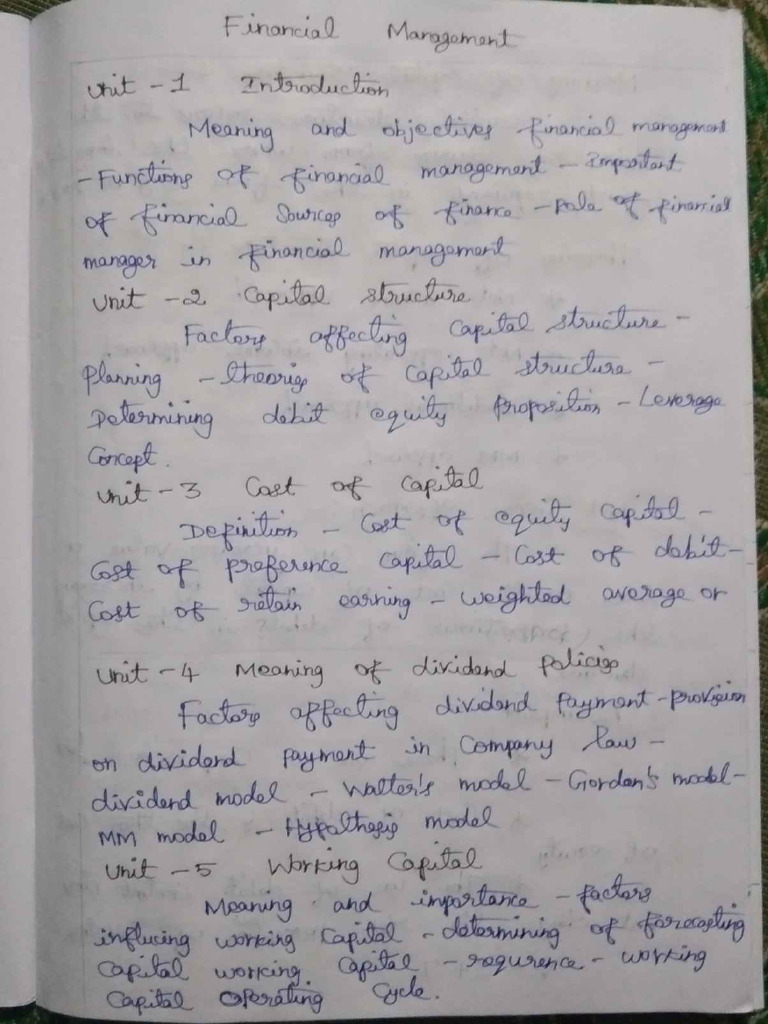 Financial Management
Unit - 1 Introduction
Meaning and objectives financial management
- Functions of financial management - Important
of financial Sources of finance - Role of financial
manager in financial management
Unit - 2 Capital structure
Factors affecting Capital structure -
Planning - theories of Capital structure -
Determining debit equity Proposition - Leverage
Concept.
Unit - 3 Cost of Capital
Definition - Cost of equity Capital -
Cost of preference Capital - Cost of debit -
Cost of retain earning - weighted average or
Unit - 4 Meaning of dividend Policies
Factors affecting dividend Payment - provision
on dividend payment in Company law -
dividend model - Walter's model - Gordan's model -
MM model - Hypalthesis model
Unit - 5 Working Capital
Meaning and importance - factors
influcing working Capital - determining of forecasting
Capital working Capital - requrence - working
Capital operating Cycle.